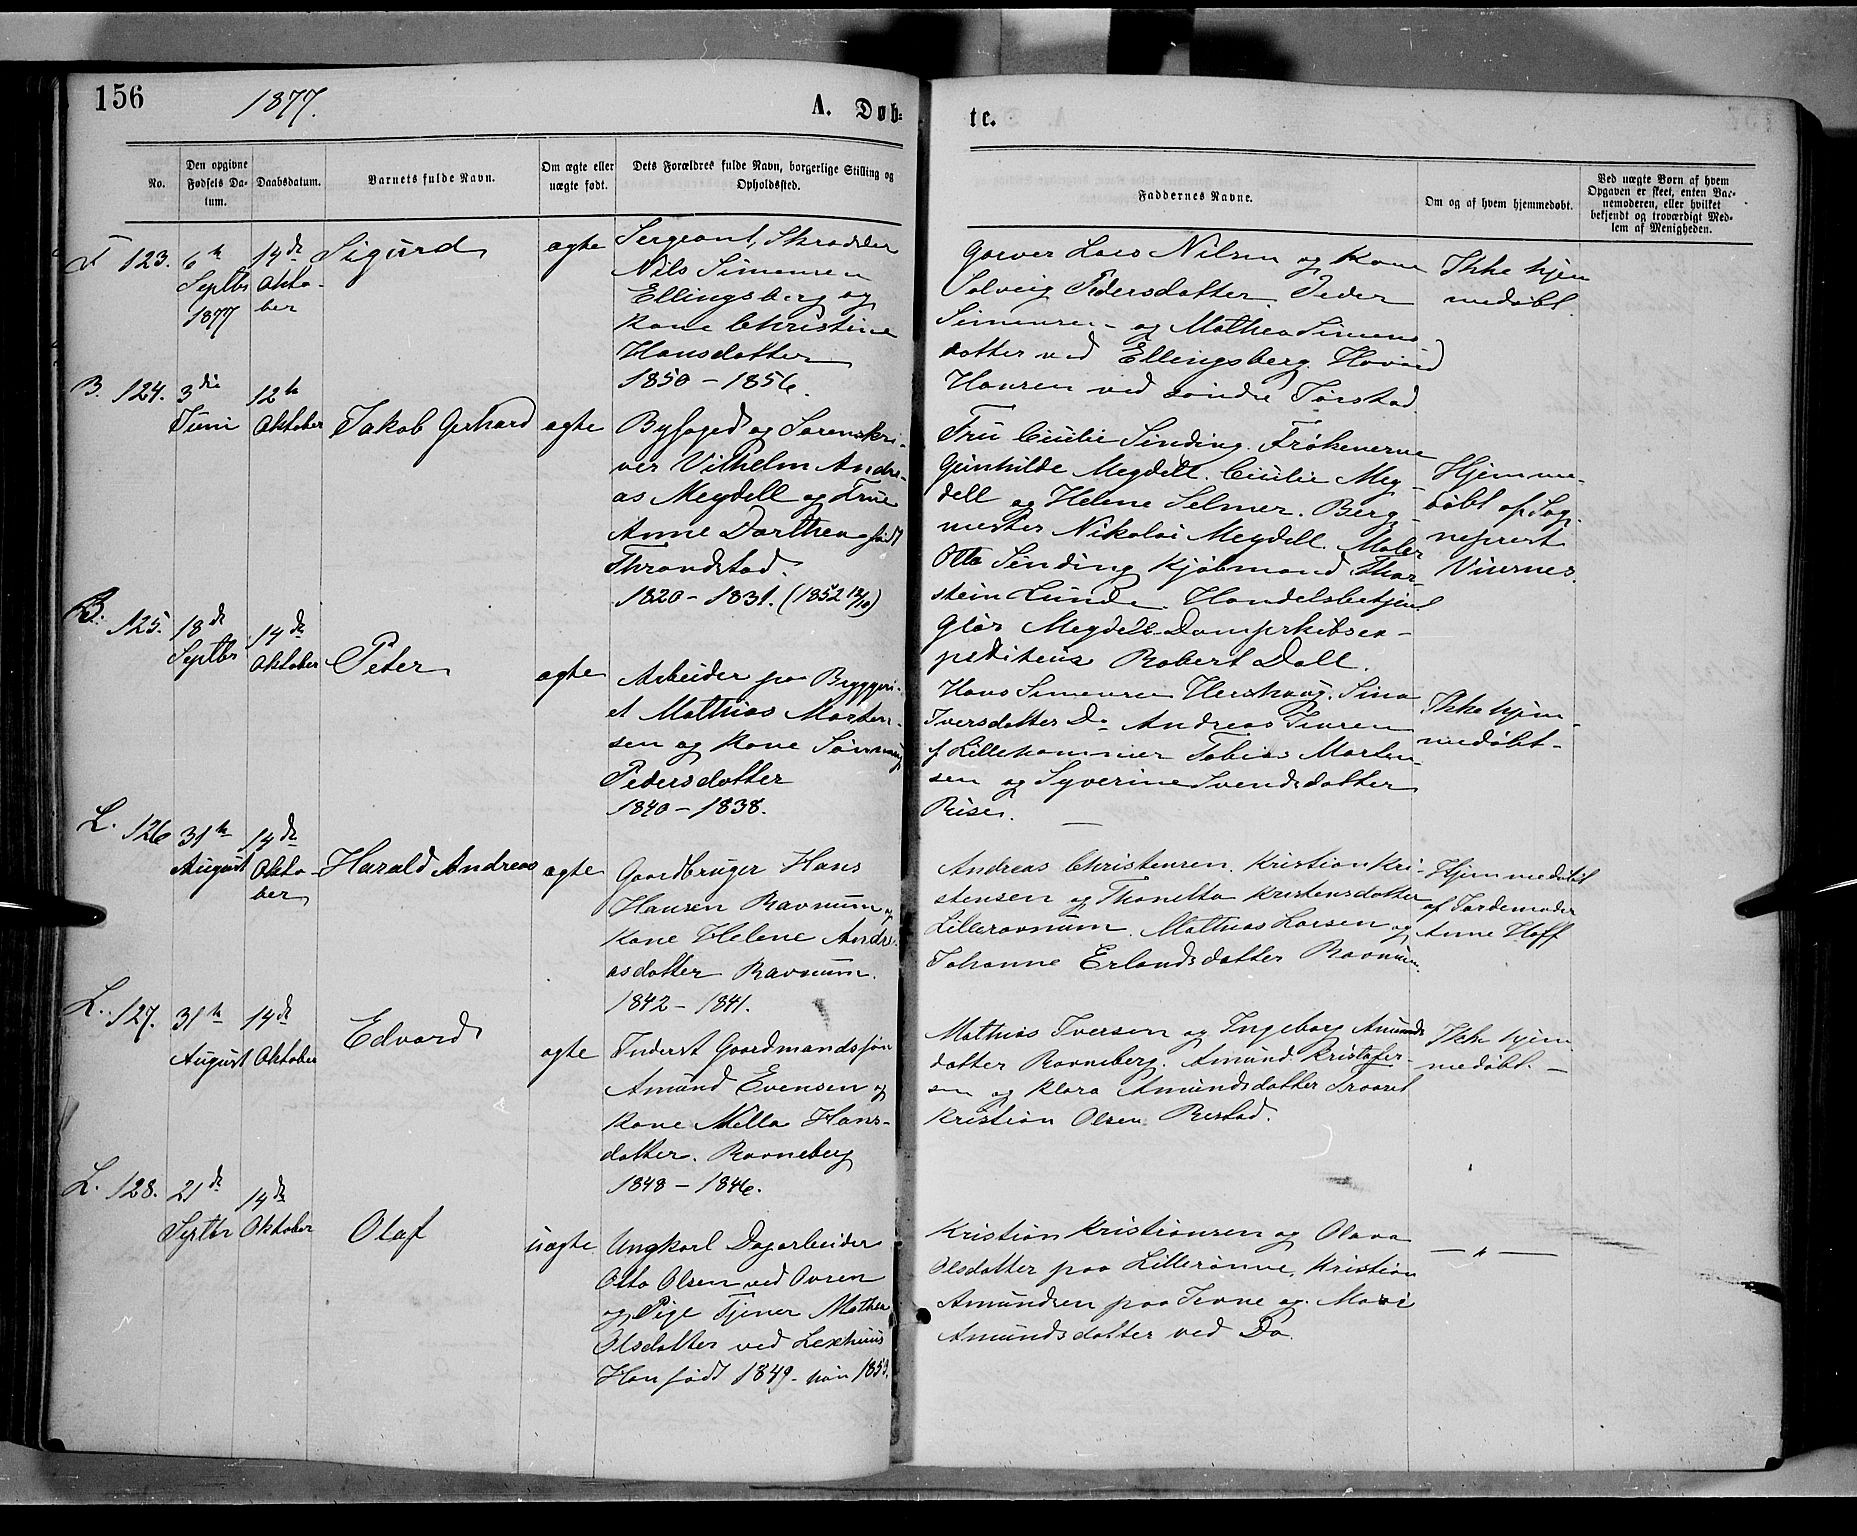 156
1877.
A. Døb-
te.
No.
Den opgivne
Fødsels Da-
tum.
Daabsdatum.
Barnets fulde Navn.
Om ægte eller
uægte født.
Dets Forældres fulde Navn, borgerlige Stilling og
Opholdssted.
Faddernes Navne.
Om og af hvem hjemmedøbt.
Ved uægte Børn af hvem
Opgaven er skeet, enten Bar-
nemoderen, eller hvilket
bekjendt og troværdigt Med-
lem af Menigheden.
F 123.
6te
Septbr
1877
14de
Okto-
ber
Sigurd
ægte
Sergeant, Skrædder
Nils Simensen
Ellingsberg og
Kone Christine
Hansdatter
1850 - 1856.
Lars Nilsen og Kone
Solveig Pedersdatter. Peder
Simensen og Mathea Simens
datter ved Ellingsberg. Havard
Hansen ved søndre Jørstad.
Ikke hjem
medøbt.
B. 124.
3die
Juni
12te
Oktober
Jakob Gerhard
ægte
Byfoged og Sorenskri-
ver Vilhelm Andre-
as Meydell og Frue
Anne Dorthea født
Throndstad.
1820 - 1831. (1852 12/10)
Fru Cecilie Sinding. Frøkenerne
Gunhilde Meydell. Cecilie Mey-
dell og Helene Selmer. Berg-
mester Nikolai Meydell. Maler
Otto Sinding Kjøbmand Thor-
stein Lunde. Handelsbetjent
Glør Meydell Dampskibsex-
pediteur Robert Doll.
Hjemme-
døbt af Sog-
neprest
Viurnes.
B. 125.
18de
Septbr
14de
Oktober
Peter
ægte
Arbeider paa Bryggeri-
et Mathias Morten-
sen og Kone Sønnaug
Pedersdatter
1840 - 1838.
Hans Simensen Hershaug. Sina
Iversdatter Do Andreas Iversen
f Lillehammer Tobias Morten-
sen og Syverine Svendsdatter
Rise.
Ikke hjem-
medøbt -
L. 126
31te
August
14de
Okto-
ber
Harald Andreas
ægte
Gaardbruger Hans
Hansen Ravnum og
Kone Helene Andre-
asdatter Ravnum.
1842 - 1841.
Andreas Christensen. Kristian Kri-
stensen og Thonetta Kristensdatter
Lilleravnum. Mathias Larsen og
Johanne Erlandsdatter Ravnum.
Hjemmedøbt
af Jordemoder
Anne Hoff
L. 127.
31te
August
14de
Oktober
Edvard
ægte
Inderst Gaardmandssøn
Amund Evensen og
Kone Mella Hans-
datter. Ravneberg
1848 - 1846.
Mathias Iversen og Ingeborg Amunds
datter Ravneberg. Amund Kristofer-
sen og Klara Amundsdatter Traaset
Kristian Olsen Restad.
Ikke hjem
medøbt. -
L. 128.
21de
Septbr
14de
Oktober
Olaf
uægte
Ungkarl Dagarbeider
Otto Olsen ved Ovren
og Pige Tjener Mathea
Olsdatter ved Lexhuus
Han født 1849 - hun 1853.
Kristian Kristiansen og Olava
Olsdatter paa Lillerønne, Kristian
Amundsen paa Jevne og Mari
Amundsdatter ved Do.
— " —